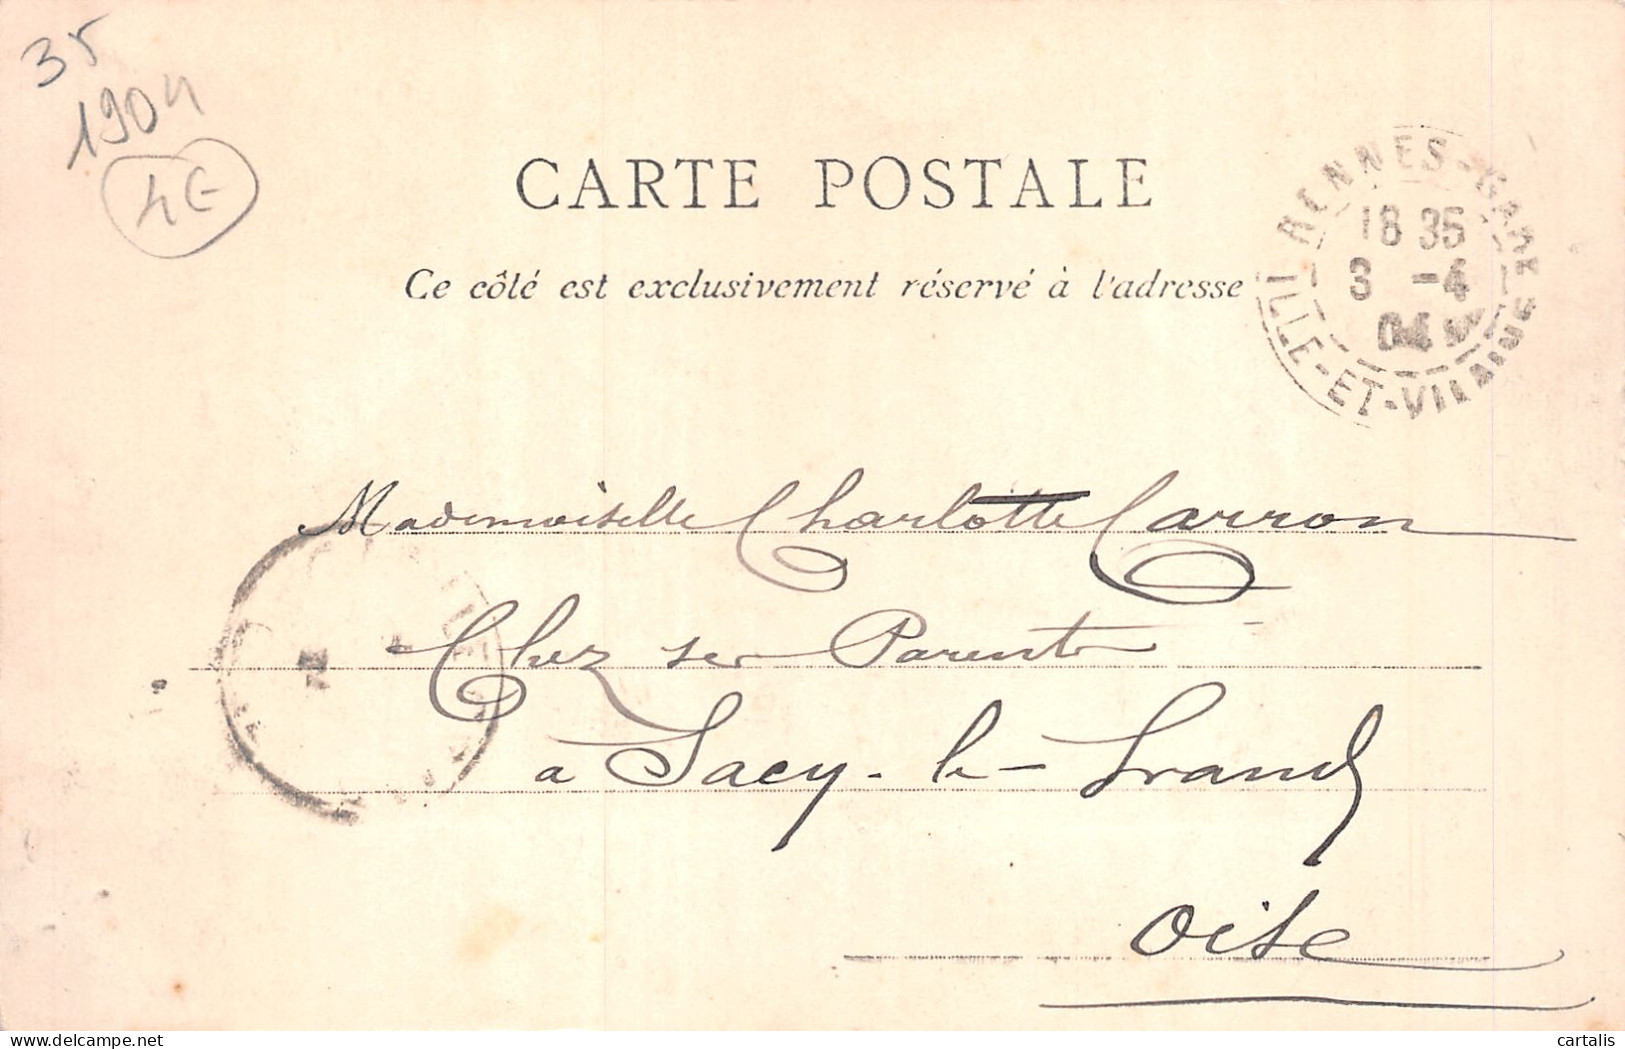 35
1904
4€
CARTE POSTALE
Ce côté est exclusivement réservé à l'adresse
RENNES-GARE
18 35
3 -4
04
ILLE-ET-VILAINE
Mademoiselle Charlotte Carron
Chez ses Parents
a Sacy-le-Grand
Oise
delcampe.net
cartalis